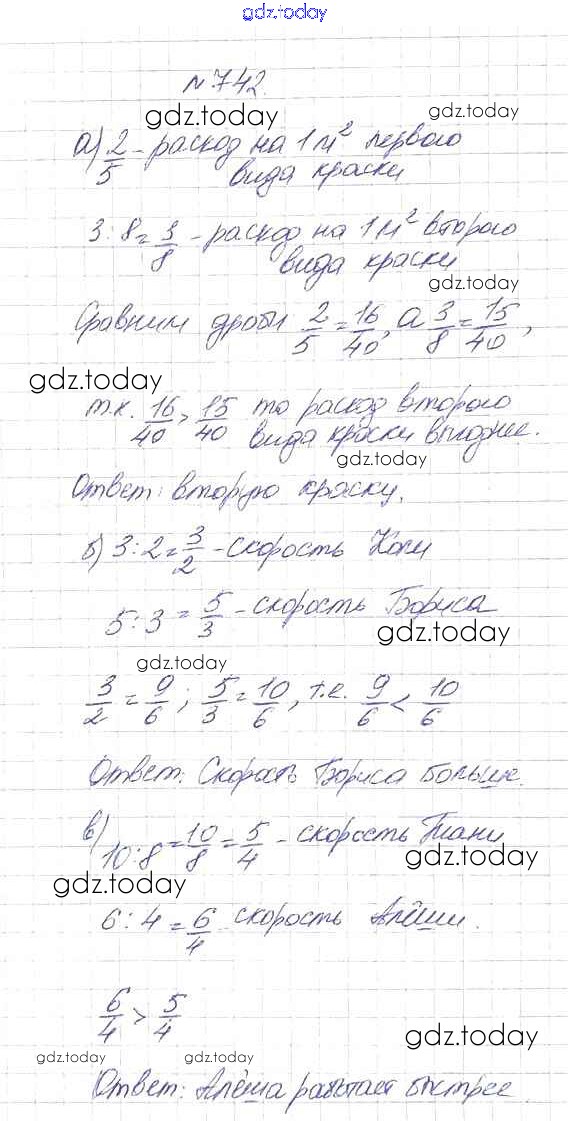 gdz.today
№ 742.
gdz.today
gdz.today
а) 2/5 - расход на 1 м² первого
вида краски
3 : 8 = 3/8 - расход на 1 м² второго
вида краски
gdz.today
Сравним дроби 2/5 = 16/40, а 3/8 = 15/40,
gdz.today
т.к. 16/40 > 15/40 то расход второго
вида краски выгоднее.
gdz.today
Ответ: вторую краску.
б) 3 : 2 = 3/2 - скорость Коли
5 : 3 = 5/3 - скорость Бориса
gdz.today
gdz.today
3/2 = 9/6 ; 5/3 = 10/6, т.е. 9/6 < 10/6
Ответ: Скорость Бориса больше.
в) 10 : 8 = 10/8 = 5/4 - скорость Тани
gdz.today
gdz.today
6 : 4 = 6/4 скорость Алёши.
6/4 > 5/4
gdz.today
gdz.today
gdz.today
Ответ: Алёша работает быстрее.